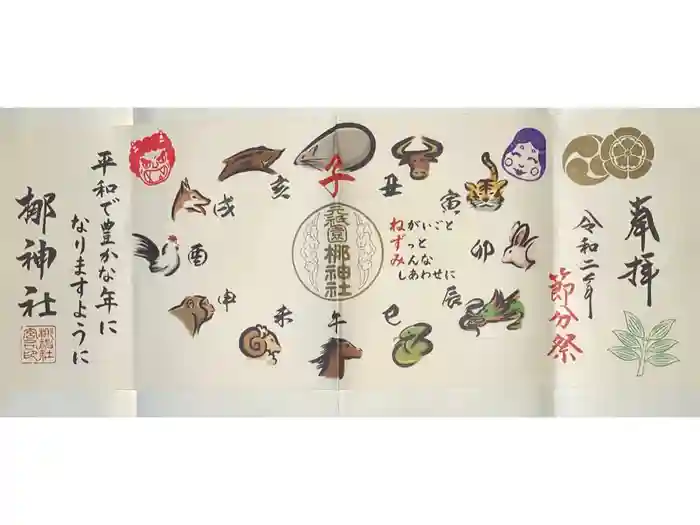 奉拝
令和二年
節分祭
子
丑
寅
卯
辰
巳
午
未
申
酉
戌
亥
元祇園
梛神社
ねがいごと
ずっと
みんな
しあわせに
平和で豊かな年に
なりますように
梛神社